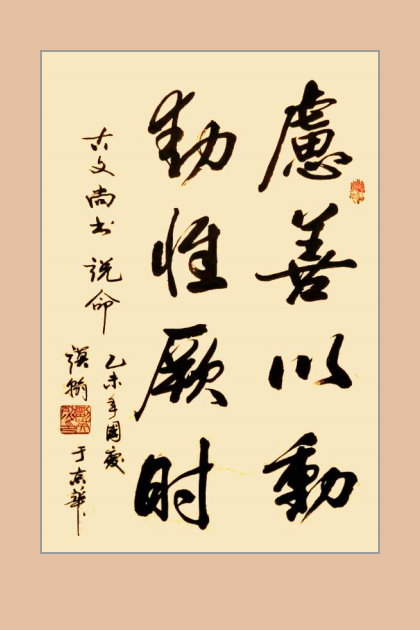 慮善以動
動惟厥时
古文尚书 説命
乙未年國慶
翰
于京華